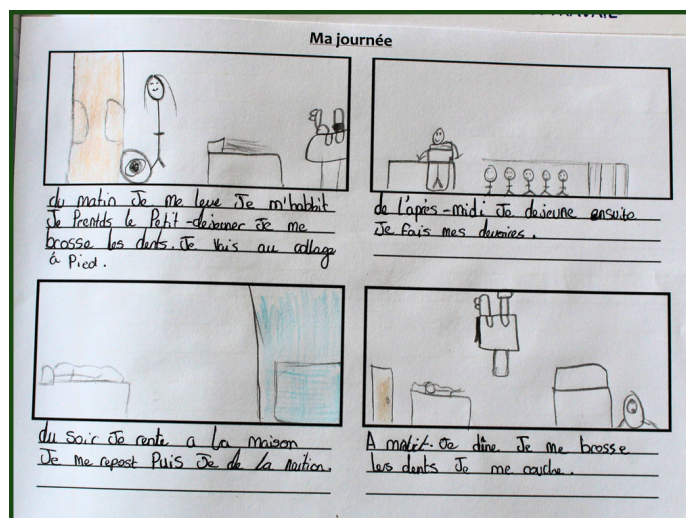 TRAVAIL
Ma journée
du matin Je me leve Je m'habbit
Je Prends le Petit-dejeuner Je me
brosse les dents. Je vais au collage
à Pied.
de l'après-midi Je dejeune ensuite
Je fais mes devoires.
du soir Je rente a la maison
Je me repost Puis Je de la
A Je dîne Je me brosse
les dents Je me couche.